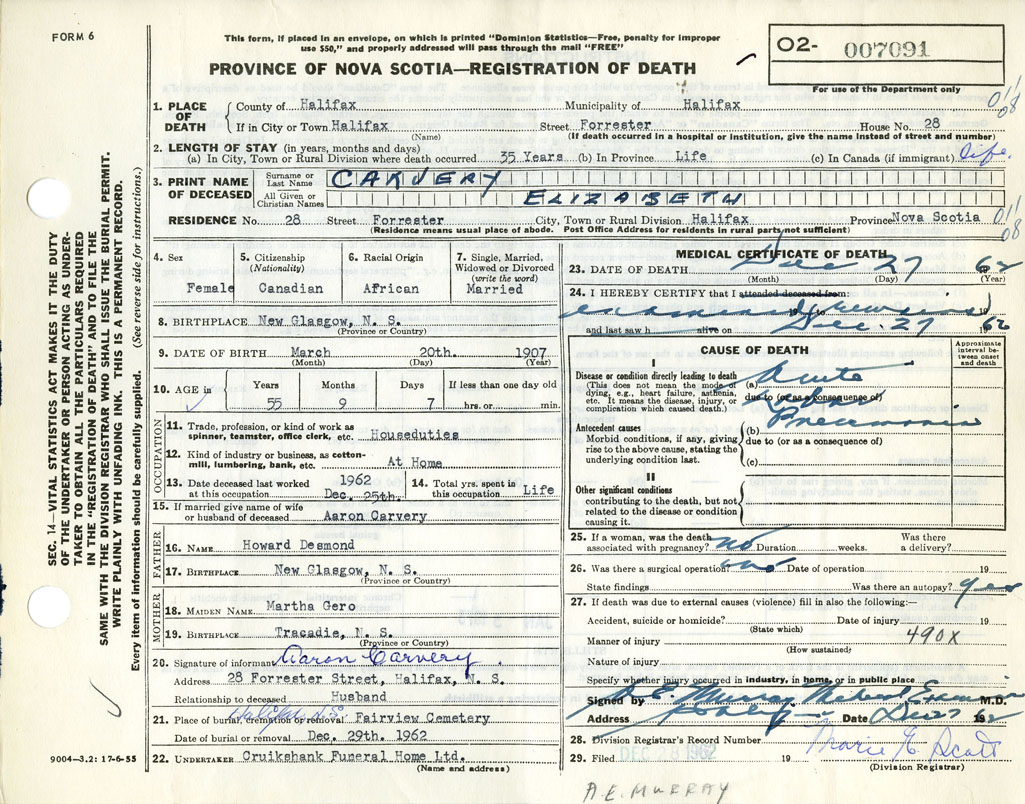 FORM 6
This form, if placed in an envelope, on which is printed "Dominion Statistics—Free, penalty for improper
use $50," and properly addressed will pass through the mail "FREE"
PROVINCE OF NOVA SCOTIA—REGISTRATION OF DEATH
02- 007091
For use of the Department only
1. PLACE OF DEATH { County of Halifax Municipality of Halifax
If in City or Town Halifax Street Forrester House No. 28
(Name) (If death occurred in a hospital or institution, give the name instead of street and number)
2. LENGTH OF STAY (in years, months and days)
(a) In City, Town or Rural Division where death occurred 35 Years (b) In Province Life (c) In Canada (if immigrant) life.
3. PRINT NAME OF DECEASED { Surname or Last Name CARVERY
All Given or Christian Names ELIZABETH
RESIDENCE No. 28 Street Forrester City, Town or Rural Division Halifax Province Nova Scotia
(Residence means usual place of abode. Post Office Address for residents in rural parts not sufficient)
011
08
011
08
4. Sex
Female
5. Citizenship
(Nationality)
Canadian
6. Racial Origin
African
7. Single, Married,
Widowed or Divorced
(write the word)
Married
8. BIRTHPLACE New Glasgow, N. S.
(Province or Country)
9. DATE OF BIRTH March 20th. 1907
(Month) (Day) (Year)
10. AGE in Years Months Days If less than one day old
55 9 7 hrs. or min.
OCCUPATION
11. Trade, profession, or kind of work as
spinner, teamster, office clerk, etc. Houseduties
12. Kind of industry or business, as cotton-
mill, lumbering, bank, etc. At Home
13. Date deceased last worked 1962
at this occupation Dec. 25th.
14. Total yrs. spent in
this occupation Life
15. If married give name of wife
or husband of deceased Aaron Carvery
FATHER
16. NAME Howard Desmond
17. BIRTHPLACE New Glasgow, N. S.
(Province or Country)
MOTHER
18. MAIDEN NAME Martha Gero
19. BIRTHPLACE Tracadie, N. S.
(Province or Country)
20. Signature of informant Aaron Carvery.
Address 28 Forrester Street, Halifax, N. S.
Relationship to deceased Husband
21. Place of burial, cremation or removal Halifax N.S. Fairview Cemetery
Date of burial or removal Dec. 29th. 1962
22. UNDERTAKER Cruikshank Funeral Home Ltd.
(Name and address)
MEDICAL CERTIFICATE OF DEATH
23. DATE OF DEATH Dec 27 62
(Month) (Day) (Year)
24. I HEREBY CERTIFY that I attended deceased from:
examined 19
and last saw h alive on Dec. 27 1962
CAUSE OF DEATH
Approximate
interval be-
tween onset
and death
I
Disease or condition directly leading to death
(This does not mean the mode of
dying, e.g., heart failure, asthenia,
etc. It means the disease, injury, or
complication which caused death.)
(a) Acute
due to (or as a consequence of)
Lobar
Antecedent causes
Morbid conditions, if any, giving
rise to the above cause, stating the
underlying condition last.
(b) Pneumonia
due to (or as a consequence of)
(c)
II
Other significant conditions
contributing to the death, but not
related to the disease or condition
causing it.
25. If a woman, was the death
associated with pregnancy? no Duration weeks. Was there
a delivery?
26. Was there a surgical operation? no Date of operation 19
State findings Was there an autopsy? yes
27. If death was due to external causes (violence) fill in also the following:—
Accident, suicide or homicide? Date of injury 19
(State which)
490X
Manner of injury
(How sustained)
Nature of injury
Specify whether injury occurred in industry, in home, or in public place
Signed by A.E. Murray Medical Examiner M.D.
Address Date Dec 27 1962
28. Division Registrar's Record Number
29. Filed DEC 28 1962 19 Marie E. Scott
(Division Registrar)
A.E. MURRAY
SEC. 14—VITAL STATISTICS ACT MAKES IT THE DUTY
OF THE UNDERTAKER OR PERSON ACTING AS UNDER-
TAKER TO OBTAIN ALL THE PARTICULARS REQUIRED
IN THE "REGISTRATION OF DEATH" AND TO FILE THE
SAME WITH THE DIVISION REGISTRAR WHO SHALL ISSUE THE BURIAL PERMIT.
WRITE PLAINLY WITH UNFADING INK. THIS IS A PERMANENT RECORD.
Every item of information should be carefully supplied. (See reverse side for instructions.)
9004—3.2: 17-6-55